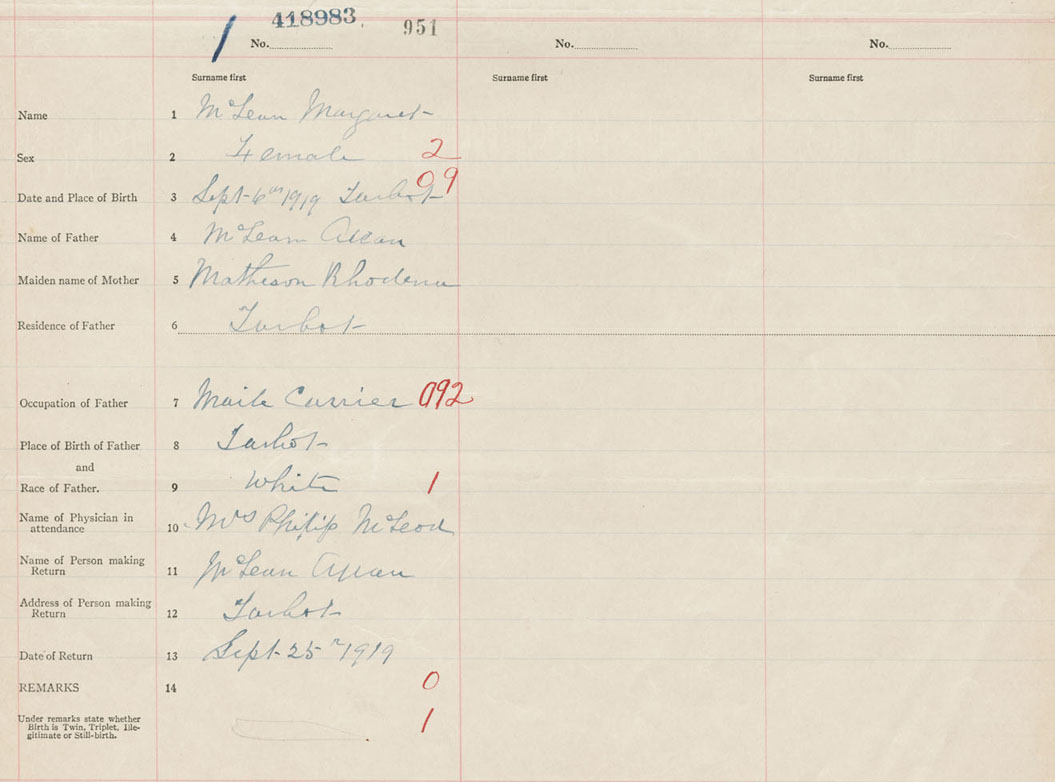 418983. 951
1 No. No. No.
Surname first Surname first Surname first
Name 1 McLean Margaret
Sex 2 Female 2
Date and Place of Birth 3 Sept 6th 1919 Tarbot 09
Name of Father 4 McLean Allan
Maiden name of Mother 5 Matheson Rhodena
Residence of Father 6 Tarbot
Occupation of Father 7 Maile Carrier 092
Place of Birth of Father 8 Tarbot
and
Race of Father. 9 White 1
Name of Physician in
attendance 10 Mrs Philip McLeod
Name of Person making
Return 11 McLean Allan
Address of Person making
Return 12 Tarbot
Date of Return 13 Sept 25th 1919
REMARKS 14 0
Under remarks state whether
Birth is Twin, Triplet, Ille-
gitimate or Still-birth. 1